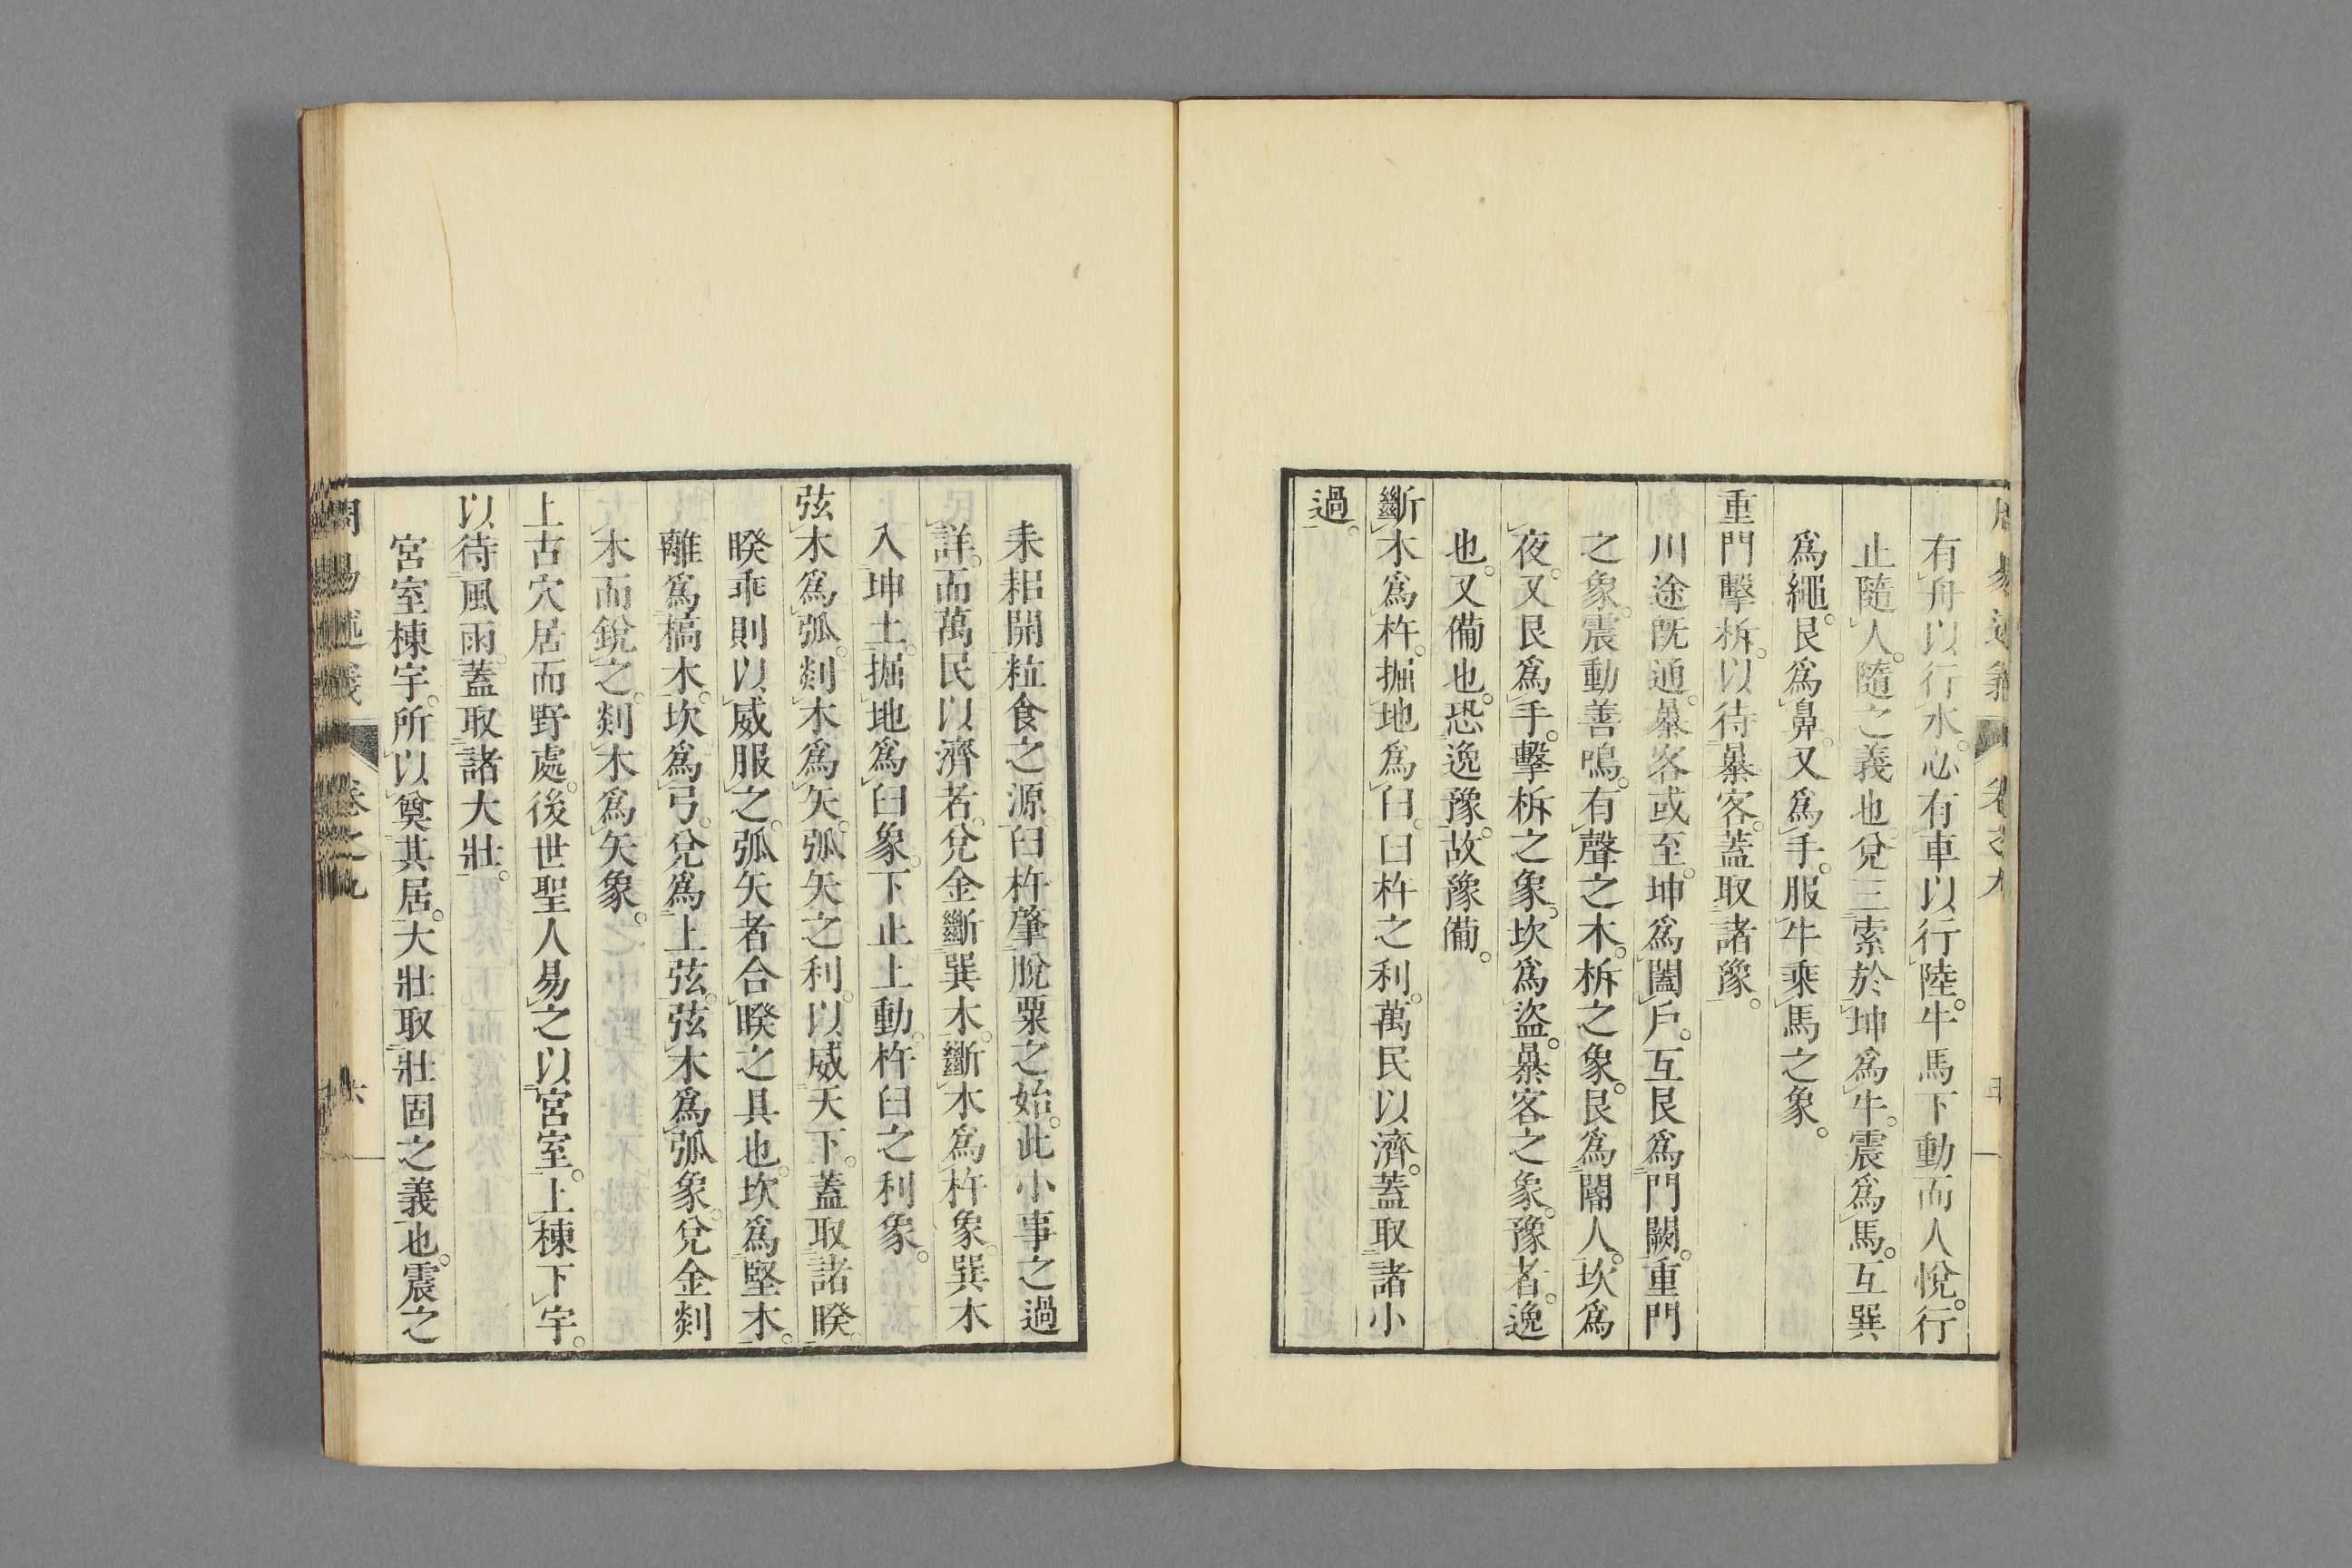 有舟以行水。必有車以行陸。牛馬下動而人悅。行
止隨人。隨之義也。兌三索於坤爲牛。震爲馬。互巽
爲繩。艮爲鼻。又爲手。服牛乘馬之象。
重門擊柝。以待暴客。蓋取諸豫。
川途旣通。暴客或至。坤爲闔戶。互艮爲門闕。重門
之象。震動善鳴。有聲之木。柝之象。艮爲閽人。坎爲
夜。又艮爲手。擊柝之象。坎爲盜。暴客之象。豫者。逸
也。又備也。恐逸豫。故豫備。
斷木爲杵。掘地爲臼。臼杵之利。萬民以濟。蓋取諸小
過。
耒耜開粒食之源。臼杵肇脫粟之始。此小事之過
詳。而萬民以濟者。兌金斷巽木。斷木爲杵象。巽木
入坤土。掘地爲臼象。下止上動。杵臼之利象。
弦木爲弧。剡木爲矢。弧矢之利。以威天下。蓋取諸睽。
睽乖則以威服之。弧矢者合睽之具也。坎爲堅木。
離爲槁木。坎爲弓。兌爲上弦。弦木爲弧象。兌金剡
木而銳之。剡木爲矢象。
上古穴居而野處。後世聖人易之以宮室。上棟下宇。
以待風雨。蓋取諸大壯。
宮室棟宇。所以奠其居。大壯取壯固之義也。震之
周易述義 卷之九